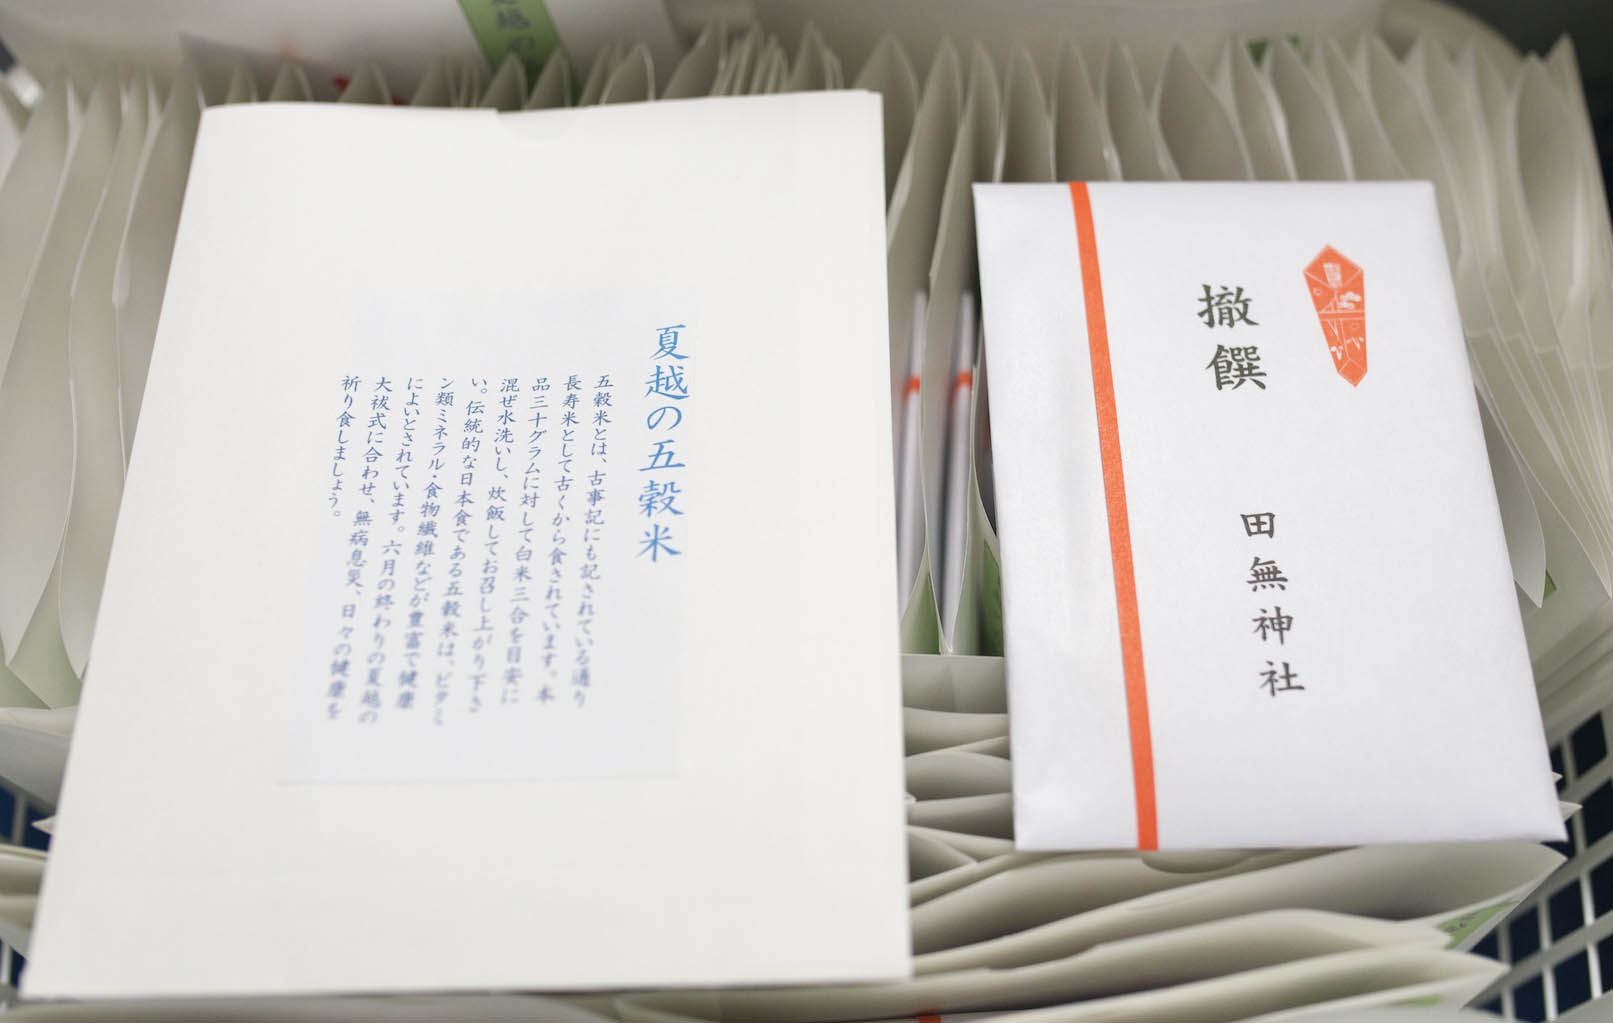 夏越の五穀米
五穀米とは、古事記にも記されている通り
長寿米として古くから食されています。本
品三十グラムに対して白米三合を目安に
混ぜ水洗いし、炊飯してお召し上がり下さ
い。伝統的な日本食である五穀米は、ビタミ
ン類ミネラル・食物繊維などが豊富で健康
によいとされています。六月の終わりの夏越の
大祓式に合わせ、無病息災、日々の健康を
祈り食しましょう。
撤饌
田無神社